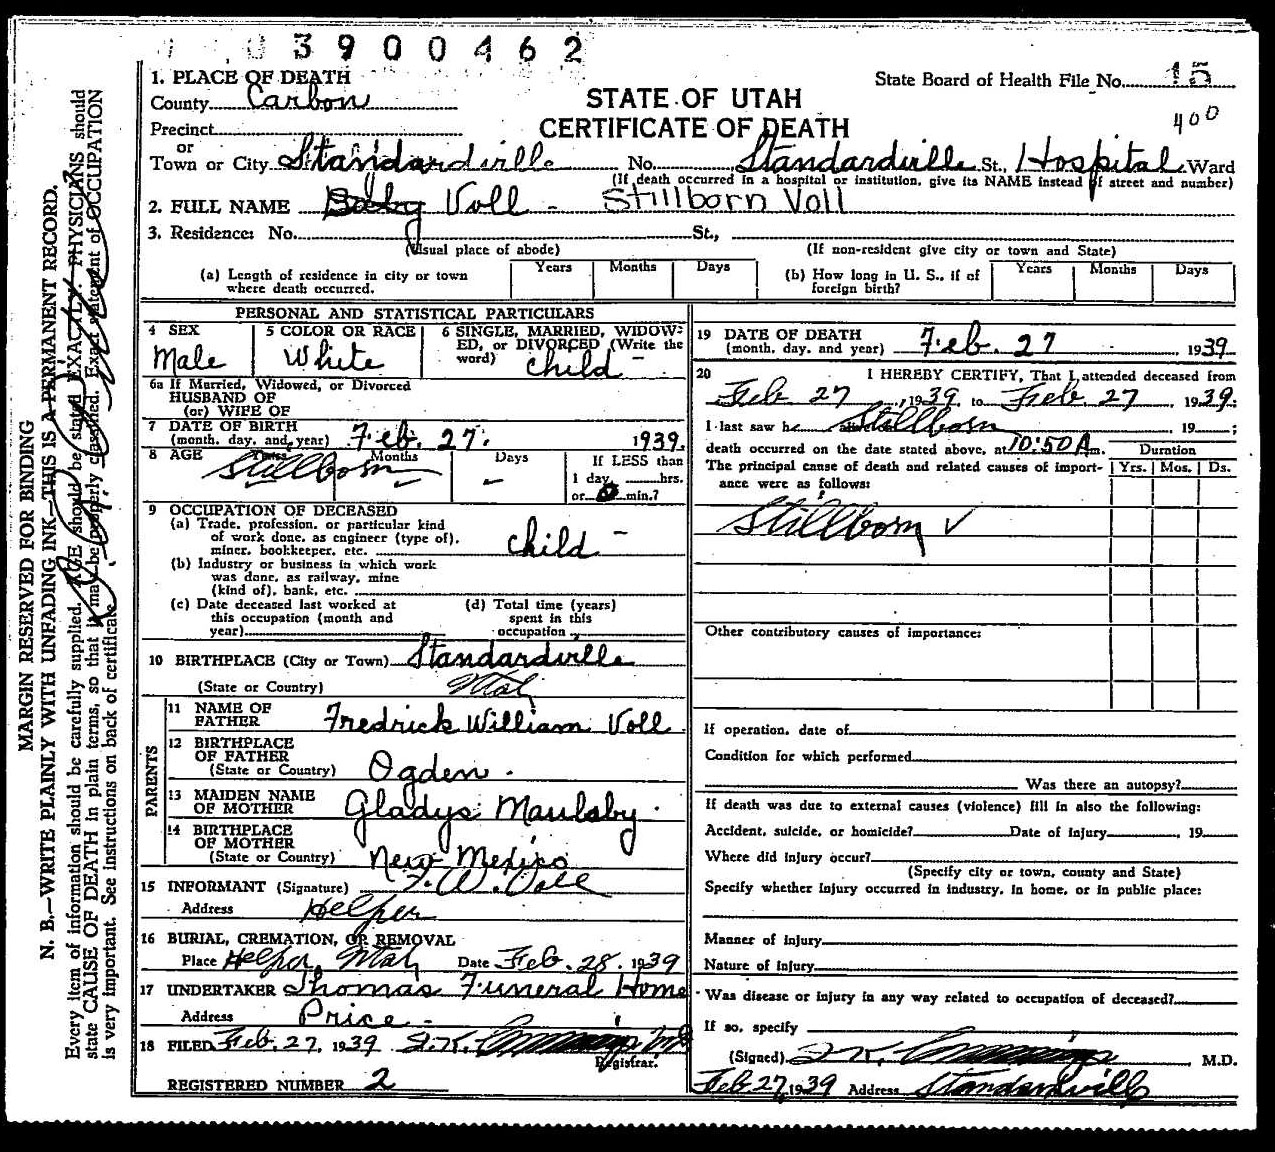 3900462
1. PLACE OF DEATH
State Board of Health File No. 15
County Carbon
STATE OF UTAH
400
Precinct
CERTIFICATE OF DEATH
or
Town or City Standardville No. Standardville St., Hospital Ward
(If death occurred in a hospital or institution, give its NAME instead of street and number)
2. FULL NAME Baby Voll - Stillborn Voll
3. Residence: No. St.,
(Usual place of abode) (If non-resident give city or town and State)
(a) Length of residence in city or town where death occurred. Years Months Days (b) How long in U. S., if of foreign birth? Years Months Days
PERSONAL AND STATISTICAL PARTICULARS
4 SEX
Male
5 COLOR OR RACE
White
6 SINGLE, MARRIED, WIDOW-
ED, or DIVORCED (Write the
word) child -
6a If Married, Widowed, or Divorced
HUSBAND OF
(or) WIFE OF
7 DATE OF BIRTH
(month, day, and year) Feb. 27. 1939.
8 AGE Years Months Days If LESS than
Stillborn - - 1 day, hrs.
or 0 min.?
9 OCCUPATION OF DECEASED
(a) Trade, profession, or particular kind
of work done, as engineer (type of),
miner, bookkeeper, etc. child -
(b) Industry or business in which work
was done, as railway, mine
(kind of), bank, etc.
(c) Date deceased last worked at
this occupation (month and
year)
(d) Total time (years)
spent in this
occupation
10 BIRTHPLACE (City or Town) Standardville
(State or Country) Utah
PARENTS
11 NAME OF
FATHER Fredrick William Voll
12 BIRTHPLACE
OF FATHER
(State or Country) Ogden.
13 MAIDEN NAME
OF MOTHER Gladys Maulsby.
14 BIRTHPLACE
OF MOTHER
(State or Country) New Mexico
15 INFORMANT (Signature) F. W. Voll
Address Helper
16 BURIAL, CREMATION, OR REMOVAL
Place Helper, Utah Date Feb. 28. 1939
17 UNDERTAKER Thomas Funeral Home
Address Price -
18 FILED Feb. 27, 1939
Registrar.
REGISTERED NUMBER 2
19 DATE OF DEATH
(month, day, and year) Feb. 27 1939
20 I HEREBY CERTIFY, That I attended deceased from
Feb 27, 1939, to Feb. 27 1939;
I last saw h Stillborn 19 ;
death occurred on the date stated above, at 10:50 A m.
Duration
The principal cause of death and related causes of import-
ance were as follows:
Yrs. Mos. Ds.
Stillborn ✓
Other contributory causes of importance:
If operation, date of
Condition for which performed
Was there an autopsy?
If death was due to external causes (violence) fill in also the following:
Accident, suicide, or homicide? Date of injury 19
Where did injury occur?
(Specify city or town, county and State)
Specify whether injury occurred in industry, in home, or in public place:
Manner of injury
Nature of injury
Was disease or injury in any way related to occupation of deceased?
If so, specify
(Signed) M.D.
Feb 27, 1939 Address Standardville
MARGIN RESERVED FOR BINDING
N. B.—WRITE PLAINLY WITH UNFADING INK—THIS IS A PERMANENT RECORD.
Every item of information should be carefully supplied. AGE should be stated EXACTLY. PHYSICIANS should
state CAUSE OF DEATH in plain terms, so that it may be properly classified. Exact statement of OCCUPATION
is very important. See instructions on back of certificate.